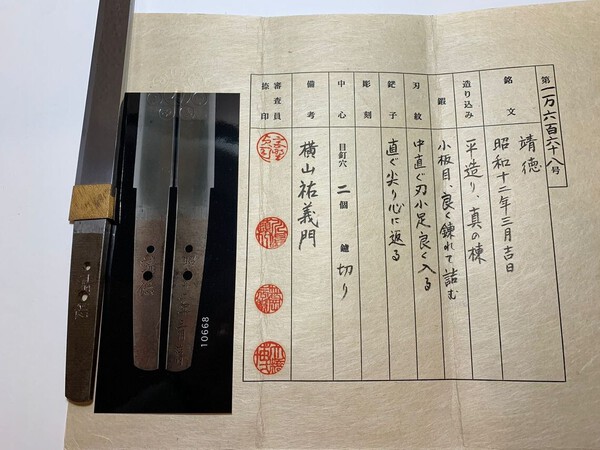 第一万六百六十八号
銘文 靖德
昭和十二年三月吉日
造り込み 平造り、真の棟
鍜 小板目、良く錬れて詰む
刃紋 中直ぐ刃小足良く入る
鋩子 直ぐ尖り心に返る
彫刻
中心 目釘穴 二個 鑢 切り
備考 横山祐義門
審査員捺印
10668